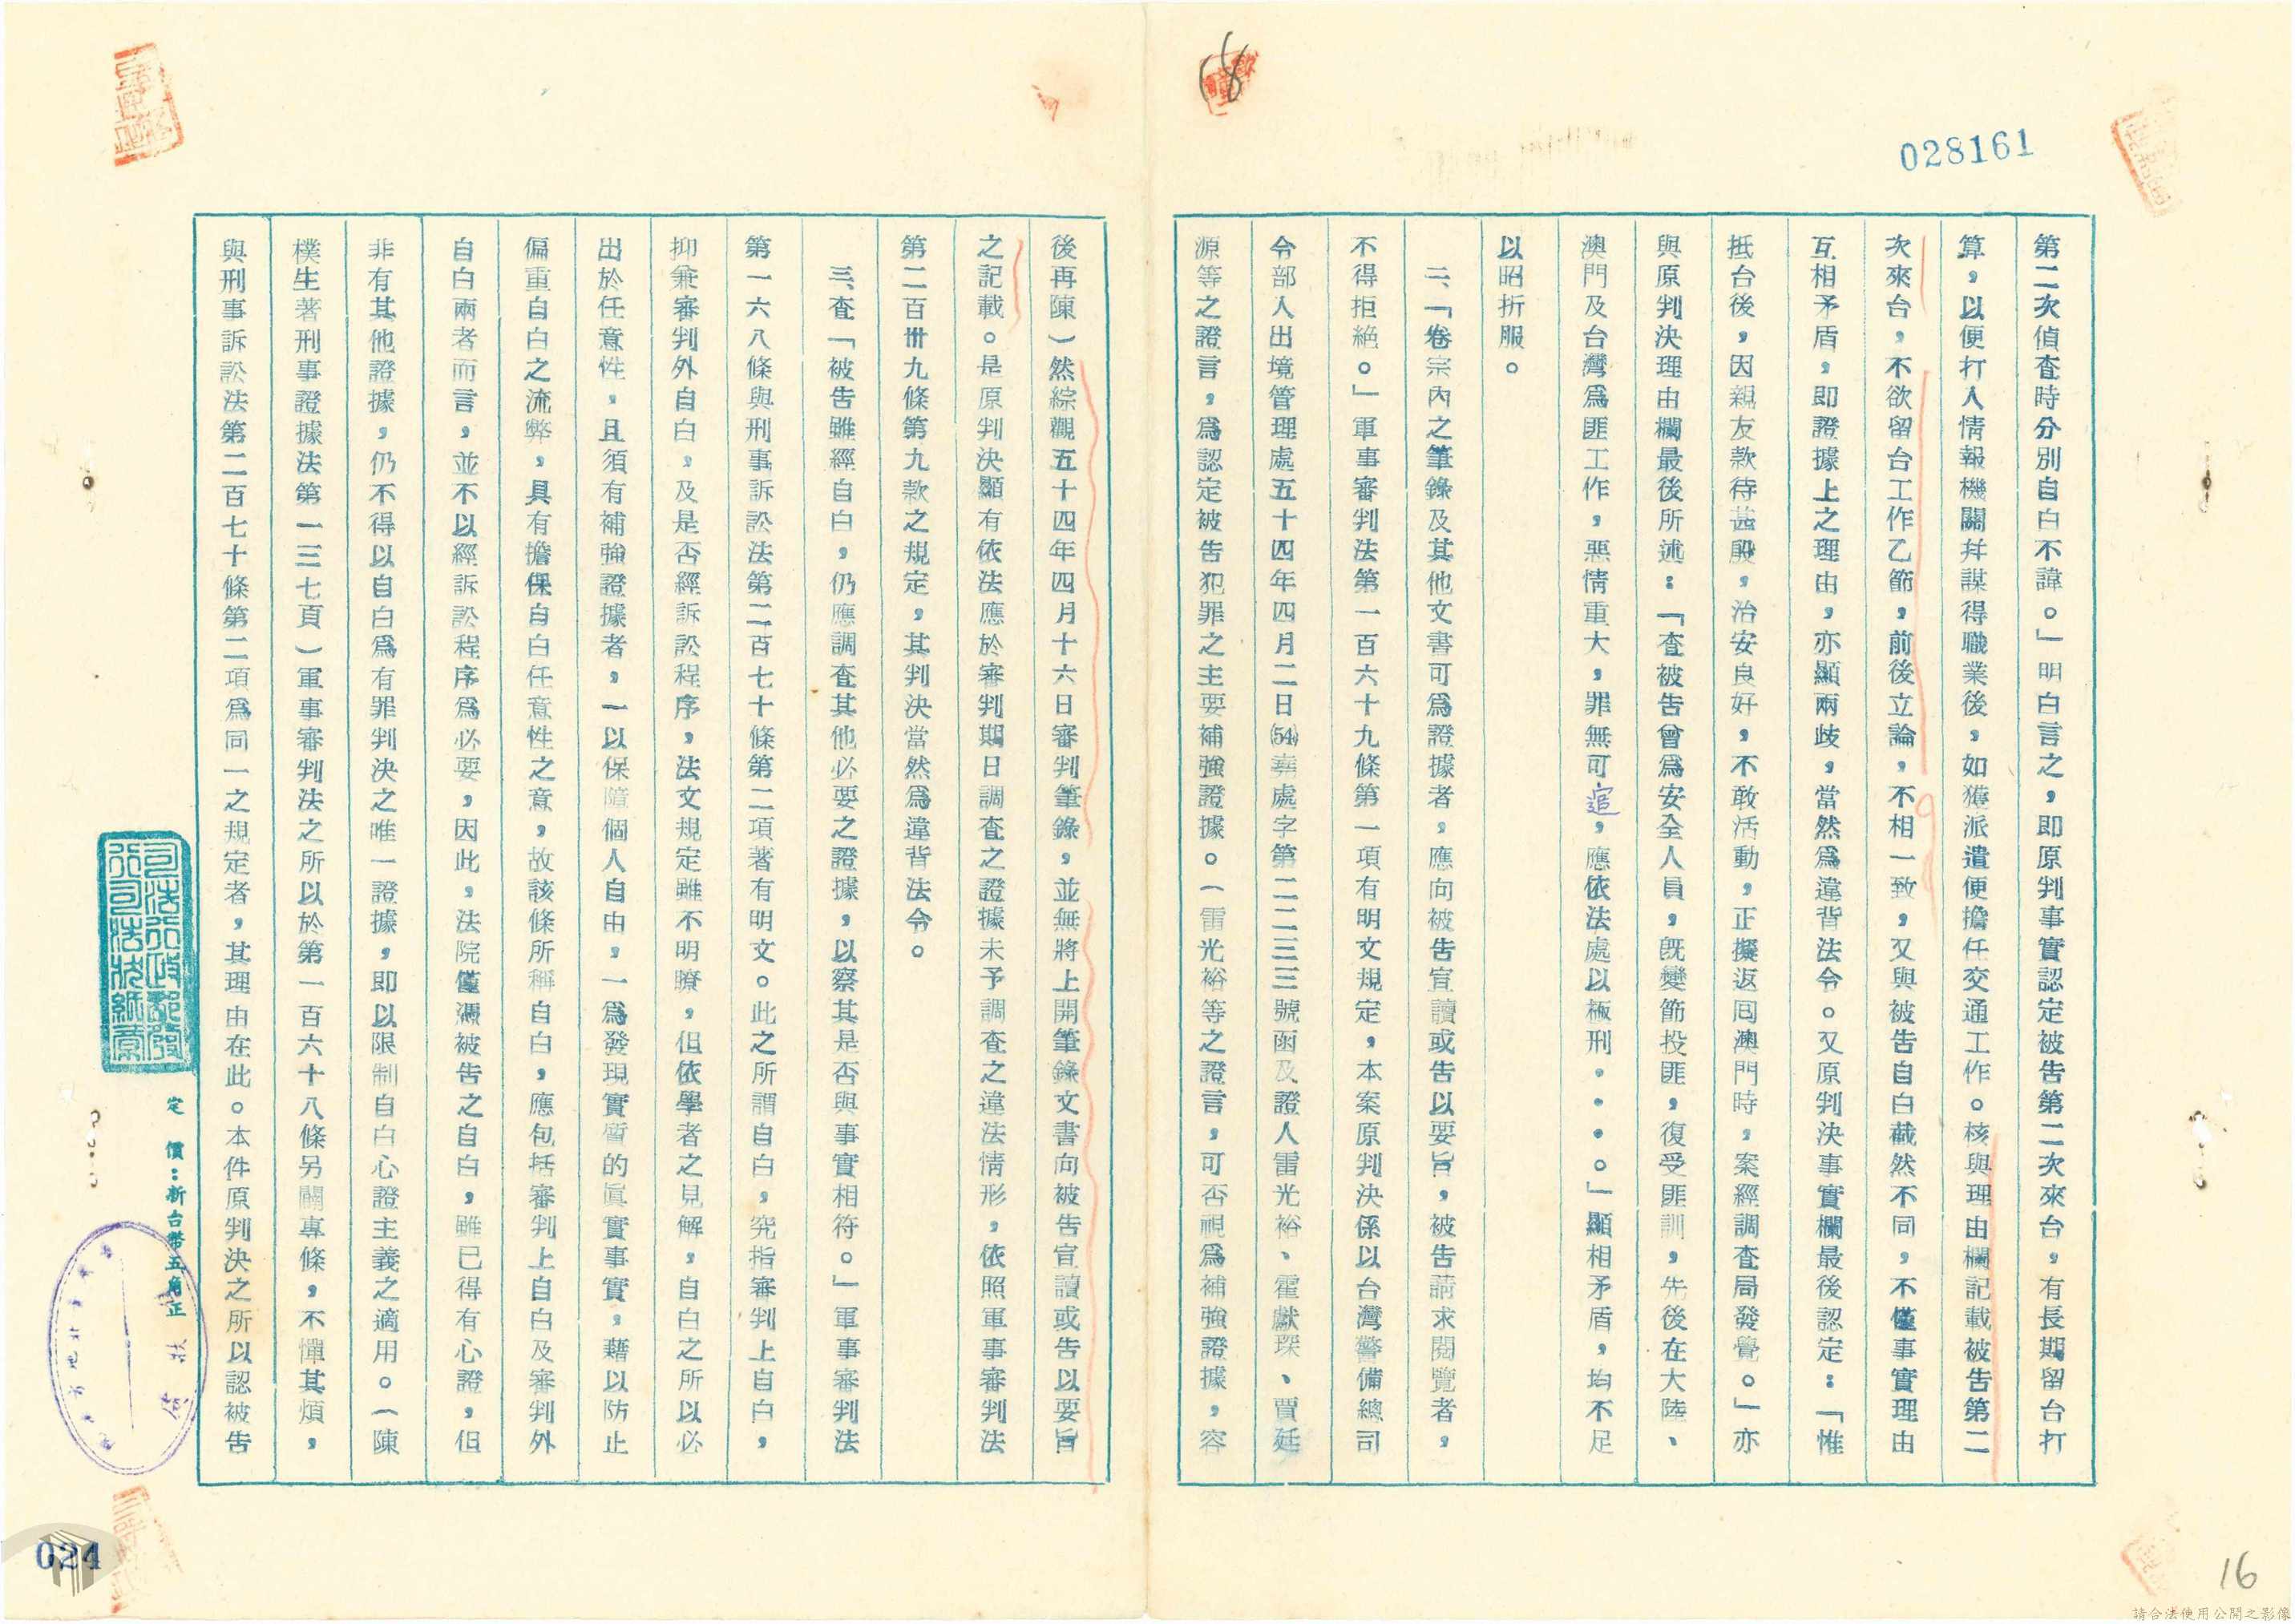 028161
第二次偵查時分別自白不諱。」明白言之，即原判事實認定被告第二次來台，有長期留台打
算，以便打入情報機關幷謀得職業後，如獲派遣便擔任交通工作。核與理由欄記載被告第二
次來台，不欲留台工作乙節，前後立論，不相一致，又與被告自白截然不同，不僅事實理由
互相矛盾，即證據上之理由，亦顯兩歧，當然爲違背法令。又原判決事實欄最後認定：「惟
抵台後，因親友款待甚殷，治安良好，不敢活動，正擬返囘澳門時，案經調查局發覺。」亦
與原判決理由欄最後所述：「查被告曾爲安全人員，旣變節投匪，復受匪訓，先後在大陸、
澳門及台灣爲匪工作，惡情重大，罪無可逭，應依法處以極刑・・・。」顯相矛盾，均不足
以昭折服。
二、「卷宗內之筆錄及其他文書可爲證據者，應向被告宣讀或告以要旨，被告請求閱覽者，
不得拒絕。」軍事審判法第一百六十九條第一項有明文規定，本案原判決係以台灣警備總司
令部入出境管理處五十四年四月二日(54)莽處字第二二三三號函及證人雷光裕、霍獻琛、賈廷
源等之證言，爲認定被告犯罪之主要補強證據。（雷光裕等之證言，可否視爲補強證據，容
後再陳）然綜觀五十四年四月十六日審判筆錄，並無將上開筆錄文書向被告宣讀或告以要旨
之記載。是原判決顯有依法應於審判期日調查之證據未予調查之違法情形，依照軍事審判法
第二百卅九條第九款之規定，其判決當然爲違背法令。
三、查「被告雖經自白，仍應調查其他必要之證據，以察其是否與事實相符。」軍事審判法
第一六八條與刑事訴訟法第二百七十條第二項著有明文。此之所謂自白，究指審判上自白，
抑兼審判外自白，及是否經訴訟程序，法文規定雖不明瞭，但依學者之見解，自白之所以必
出於任意性，且須有補強證據者，一以保障個人自由，一爲發現實質的眞實事實，藉以防止
偏重自白之流弊，具有擔保自白任意性之意，故該條所稱自白，應包括審判上自白及審判外
自白兩者而言，並不以經訴訟程序爲必要，因此，法院僅憑被告之自白，雖已得有心證，但
非有其他證據，仍不得以自白爲有罪判決之唯一證據，即以限制自白心證主義之適用。（陳
樸生著刑事證據法第一三七頁）軍事審判法之所以於第一百六十八條另闢專條，不憚其煩，
與刑事訴訟法第二百七十條第二項爲同一之規定者，其理由在此。本件原判決之所以認被告
定　價：新台幣五角正
司法行政部發
行司法狀紙章
024
16
請合法使用公開之影像